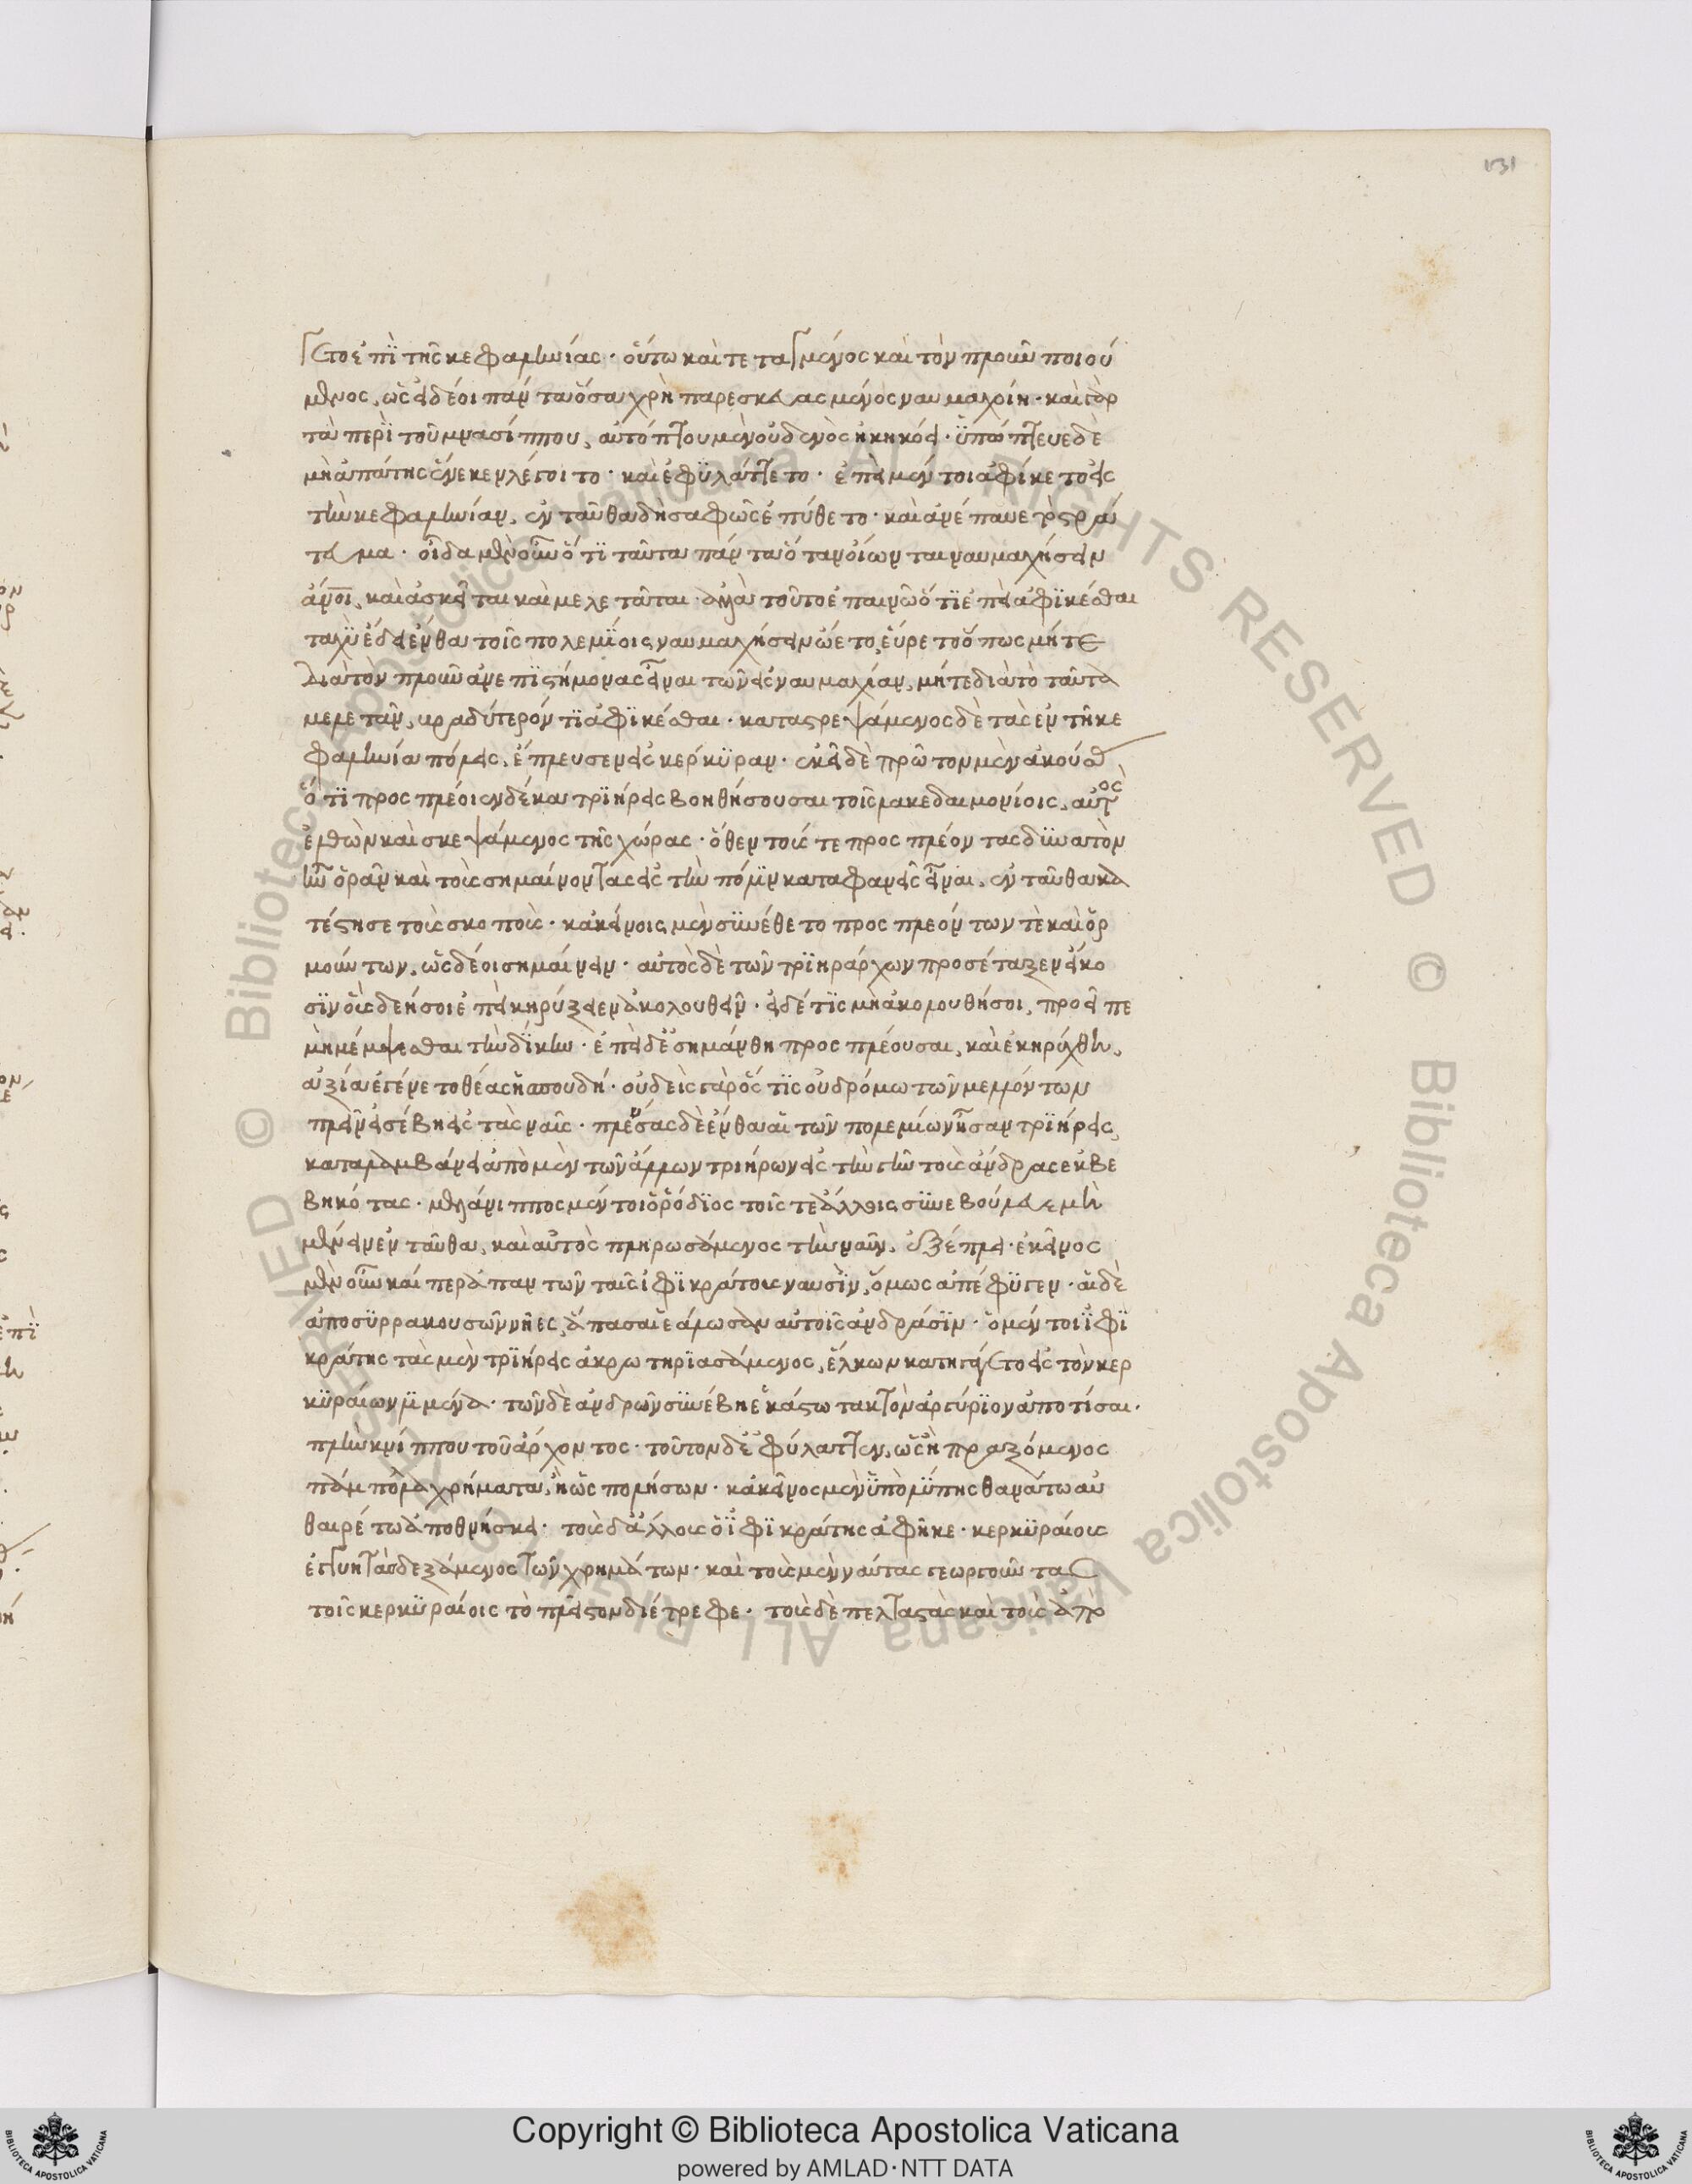 γετο ἐπὶ τῆς κεφαλληνίας· οὕτω καὶ τεταγμένος καὶ τὸν πλοῦν ποιού
μενος, ὡς εἰ δέοι πάντα ὅσα χρὴ παρεσκευασμένος ναυμαχοίη· καὶ γὰρ
τὰ περὶ τοῦ μνασίππου, αὐτόπτου μὲν οὐδενὸς ἠκηκόει· ὑπώπτευε δὲ
μὴ ἀπάτης ἕνεκεν λέγοιτο· καὶ ἐφυλάττετο· ἐπεὶ μέντοι ἀφίκετο εἰς
τὴν κεφαλληνίαν, ἐνταῦθα δὴ σαφῶς ἐπύθετο· καὶ ἀνέπαυε τὸ στρά
τευμα· οἶδα μὲν οὖν ὅτι ταῦτα πάντα ὅταν οἴωνται ναυμαχήσειν
ἄνοι, καὶ ἀσκεῖται καὶ μελετᾶται· ἀλλὰ τοῦτο ἐπαινῶ ὅτι ἐπεὶ ἀφικέσθαι
ταχὺ ἔδει ἔνθα τοῖς πολεμίοις ναυμαχήσειν ὤετο, εὕρετο ὅπως μήτε
διὰ τὸν πλοῦν ἀνεπιστήμονας εἶναι τῶν εἰς ναυμαχίαν, μήτε διὰ τὸ ταῦτα
μελετᾶν, βραδύτερόν τι ἀφικέσθαι· καταστρεψάμενος δὲ τὰς ἐν τῆ κε
φαλληνία πόλεις, ἔπλευσεν εἰς κερκύραν· ἐκεῖ δὲ πρῶτον μὲν ἀκούσας
ὅτι προσπλέοιεν δέκα τριήρεις βοηθήσουσαι τοῖς λακεδαιμονίοις, αὐτὸς
ἐλθὼν καὶ σκεψάμενος τῆς χώρας· ὅθεν τούς τε προσπλέοντας δυνατὸν
ἦν ὁρᾶν καὶ τοὺς σημαίνοντας εἰς τὴν πόλιν καταφανεῖς εἶναι, ἐνταῦθα κα
τέστησε τοὺς σκοποὺς· κἀκείνοις μὲν συνέθετο προσπλεόντων τὲ καὶ ὁρ
μούντων, ὡς δέοι σημαίνειν· αὐτὸς δὲ τῶν τριηράρχων προσέταξεν εἴκο
σιν οὓς δεήσοι ἐπεὶ κηρύξειεν ἀκολουθεῖν· εἰ δέ τις μὴ ἀκολουθήσοι, προεῖπε
μὴ μέμψεσθαι τὴν δίκην· ἐπεὶ δὲ ἐσημάνθη προσπλέουσαι, καὶ ἐκηρύχθη,
ἀξία ἐγένετο θέας ἡ σπουδή· οὐδεὶς γὰρ ὅς τις οὐ δρόμω τῶν μελλόντων
πλεῖν εἰσέβη εἰς τὰς ναῦς· πλεύσας δὲ ἔνθα αἱ τῶν πολεμίων ἦσαν τριήρεις,
καταλαμβάνει ἀπὸ μὲν τῶν ἄλλων τριήρων εἰς τὴν γῆν τοὺς ἄνδρας ἐκβε
βηκότας· μελάνιππος μέντοι ὁ ῥόδιος τοῖς τε ἄλλοις συνεβούλευε μὴ
μένειν ἐνταῦθα, καὶ αὐτὸς πληρωσάμενος τὴν ναῦν, ἐξέπλει· ἐκεῖνος
μὲν οὖν καίπερ ἀπαντῶν ταῖς ἰφικράτους ναυσὶν, ὅμως ἀπέφυγεν· αἱ δὲ
ἀπὸ συρρακουσῶν νῆες, ἅπασαι ἑάλωσαν αὐτοῖς ἀνδράσιν· ὁ μέντοι ἰφι
κράτης τὰς μὲν τριήρεις ἀκρωτηριασάμενος, ἕλκων κατηγάγετο εἰς τὸν κερ
κυραίων λιμένα· τῶν δὲ ἀνδρῶν συνέβη ἑκάστω τακτὸν ἀργύριον ἀποτίσαι·
πλὴν κρινίππου τοῦ ἄρχοντος· τοῦτον δὲ ἐφύλαττεν, ὡς ἢ πραξόμενος
πάμπολλα χρήματα, ἢ ὡς πωλήσων· κἀκεῖνος μὲν ὑπὸ λύπης θανάτω αὐ
θαιρέτω ἀποθνήσκει· τοὺς δ' ἄλλους ὁ ἰφικράτης ἀφῆκε· κερκυραίους
ἐγγυητὰς δεξάμενος τῶν χρημάτων· καὶ τοὺς μὲν ναύτας γεωργοῦντας
τοῖς κερκυραίοις τὸ πλεῖστον διέτρεφε· τοὺς δὲ πελταστὰς καὶ τοὺς ἀπὸ